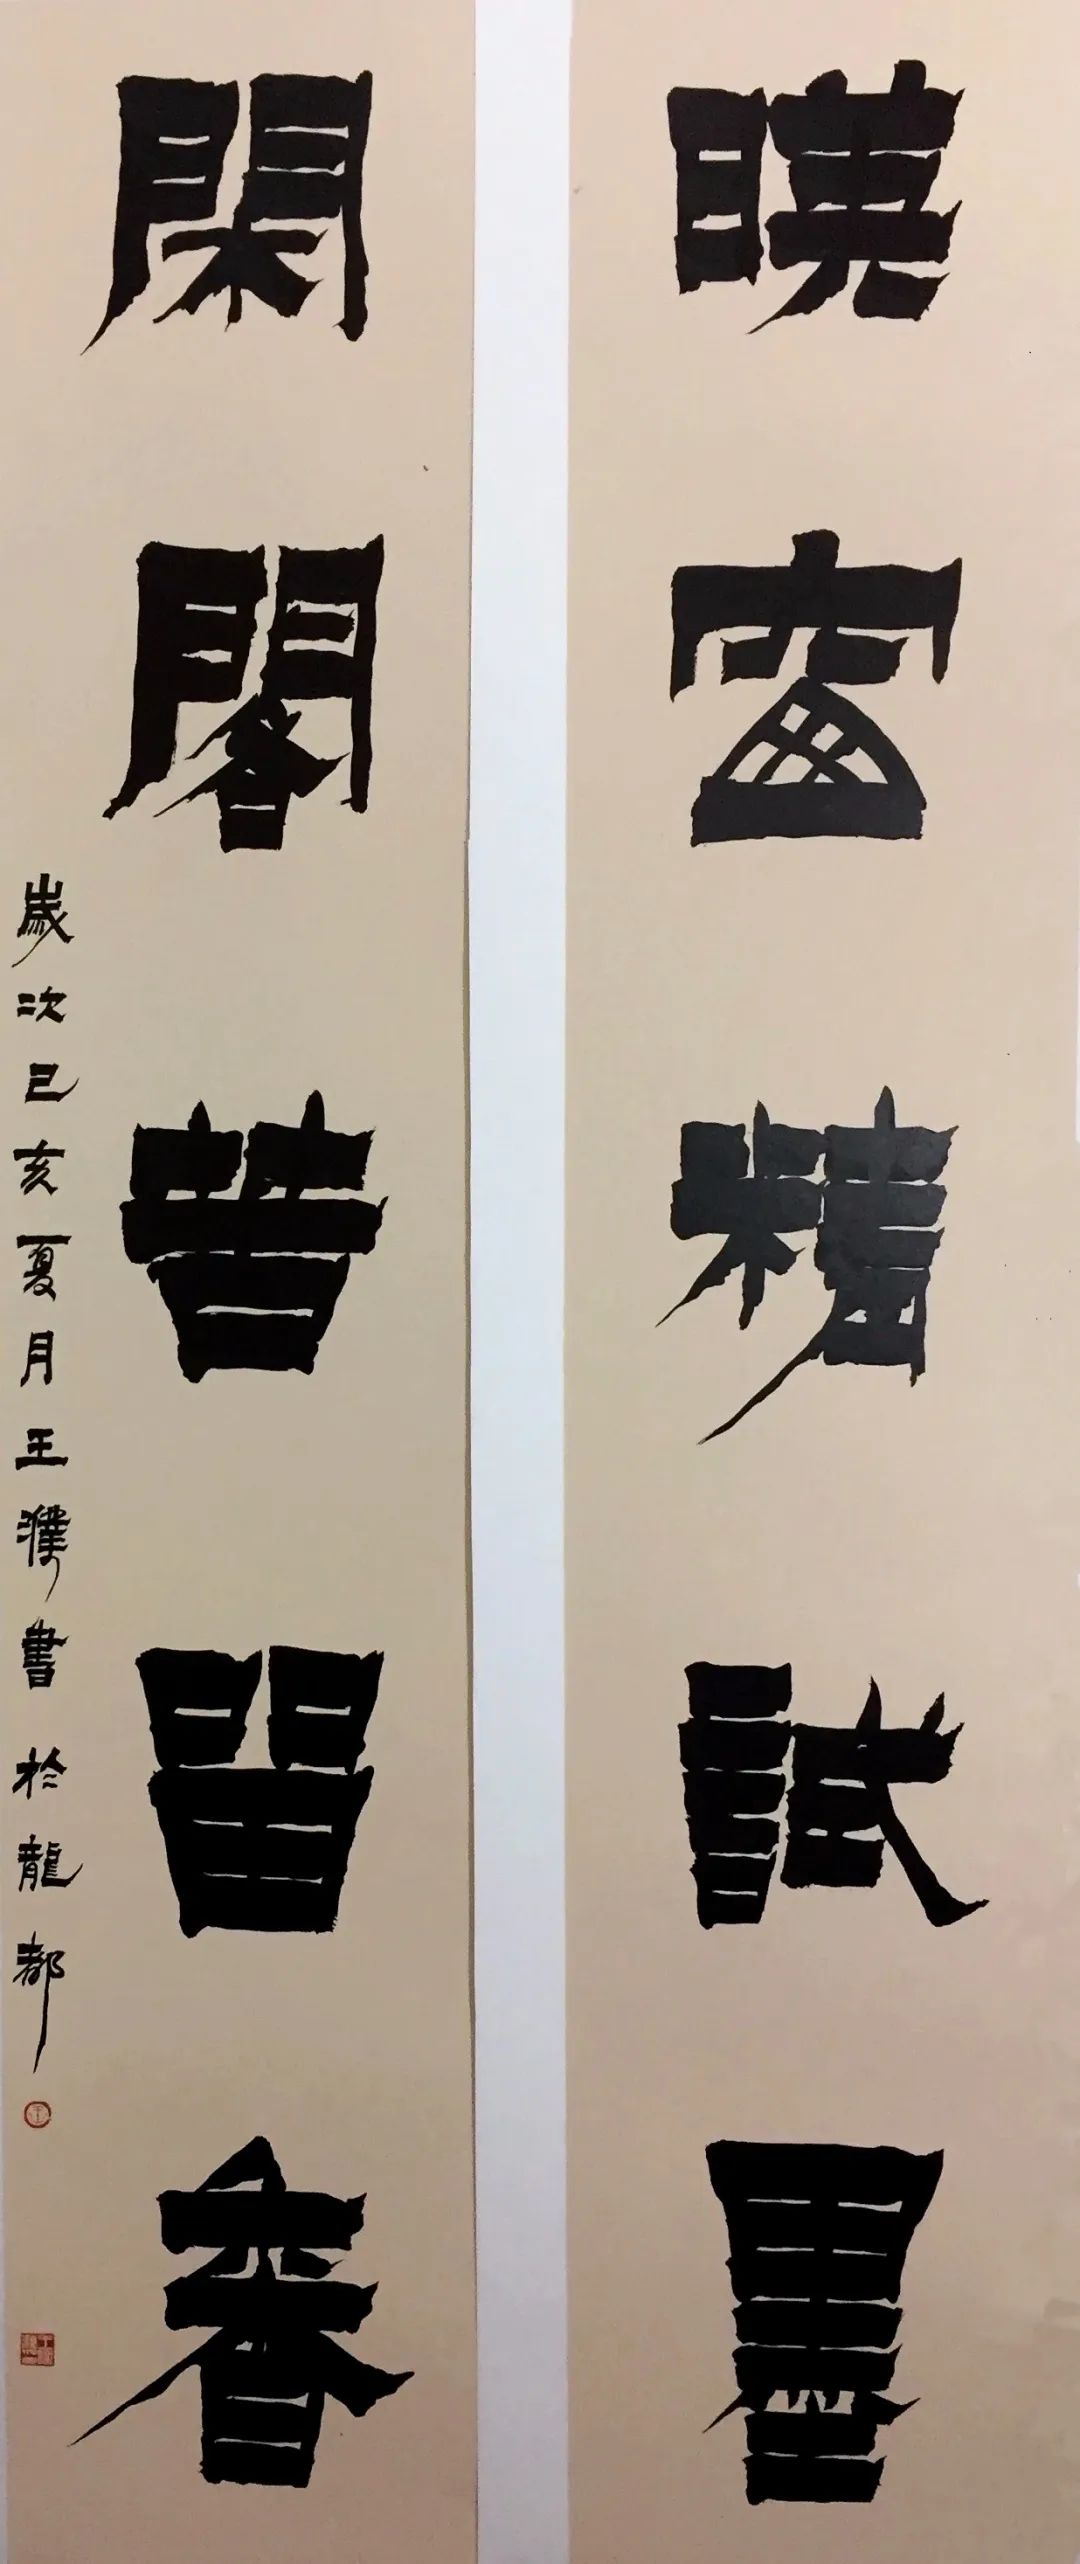 曉窗精試墨
閑閣昔留香
歲次己亥夏月王濮書於龍都